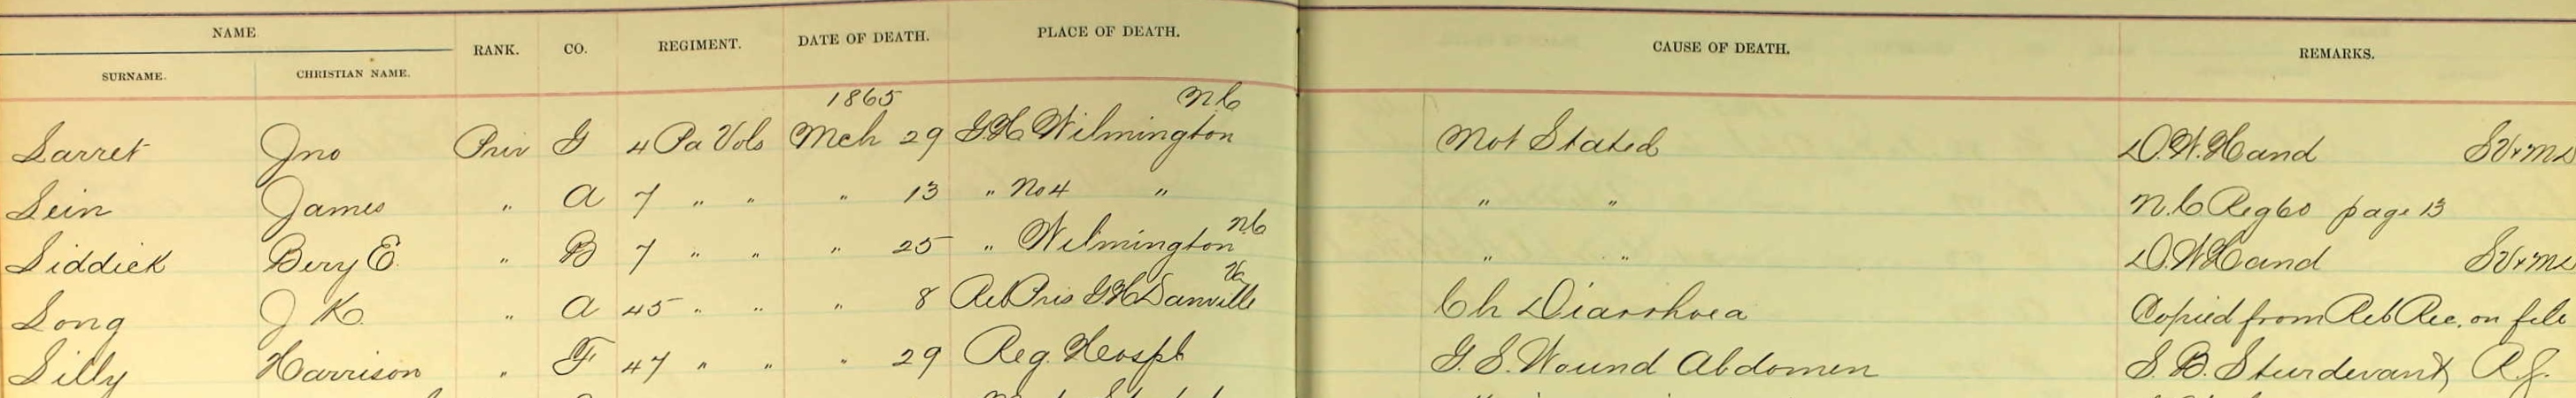 NAME. RANK. CO. REGIMENT. DATE OF DEATH. PLACE OF DEATH. CAUSE OF DEATH. REMARKS.
SURNAME. CHRISTIAN NAME.
1865 N.C
Larret Jno Priv G 4 Pa Vols Mch 29 G.H. Wilmington Not Stated D.W. Hand
Lein James " A 7 " " " 13 " No 4 " " " N.C Reg 60 page 13
N.C
Liddick Bery E. " B 7 " " " 25 " Wilmington " " D.W. Hand
Va
Long J K. " A 45 " " " 8 Reb Pris G.H Danville Ch Diarrhoea Copied from Reb Rec. on file
Lilly Harrison " F 47 " " " 29 Reg. Hospl G. S. Wound Abdomen S. B. Sturdevant